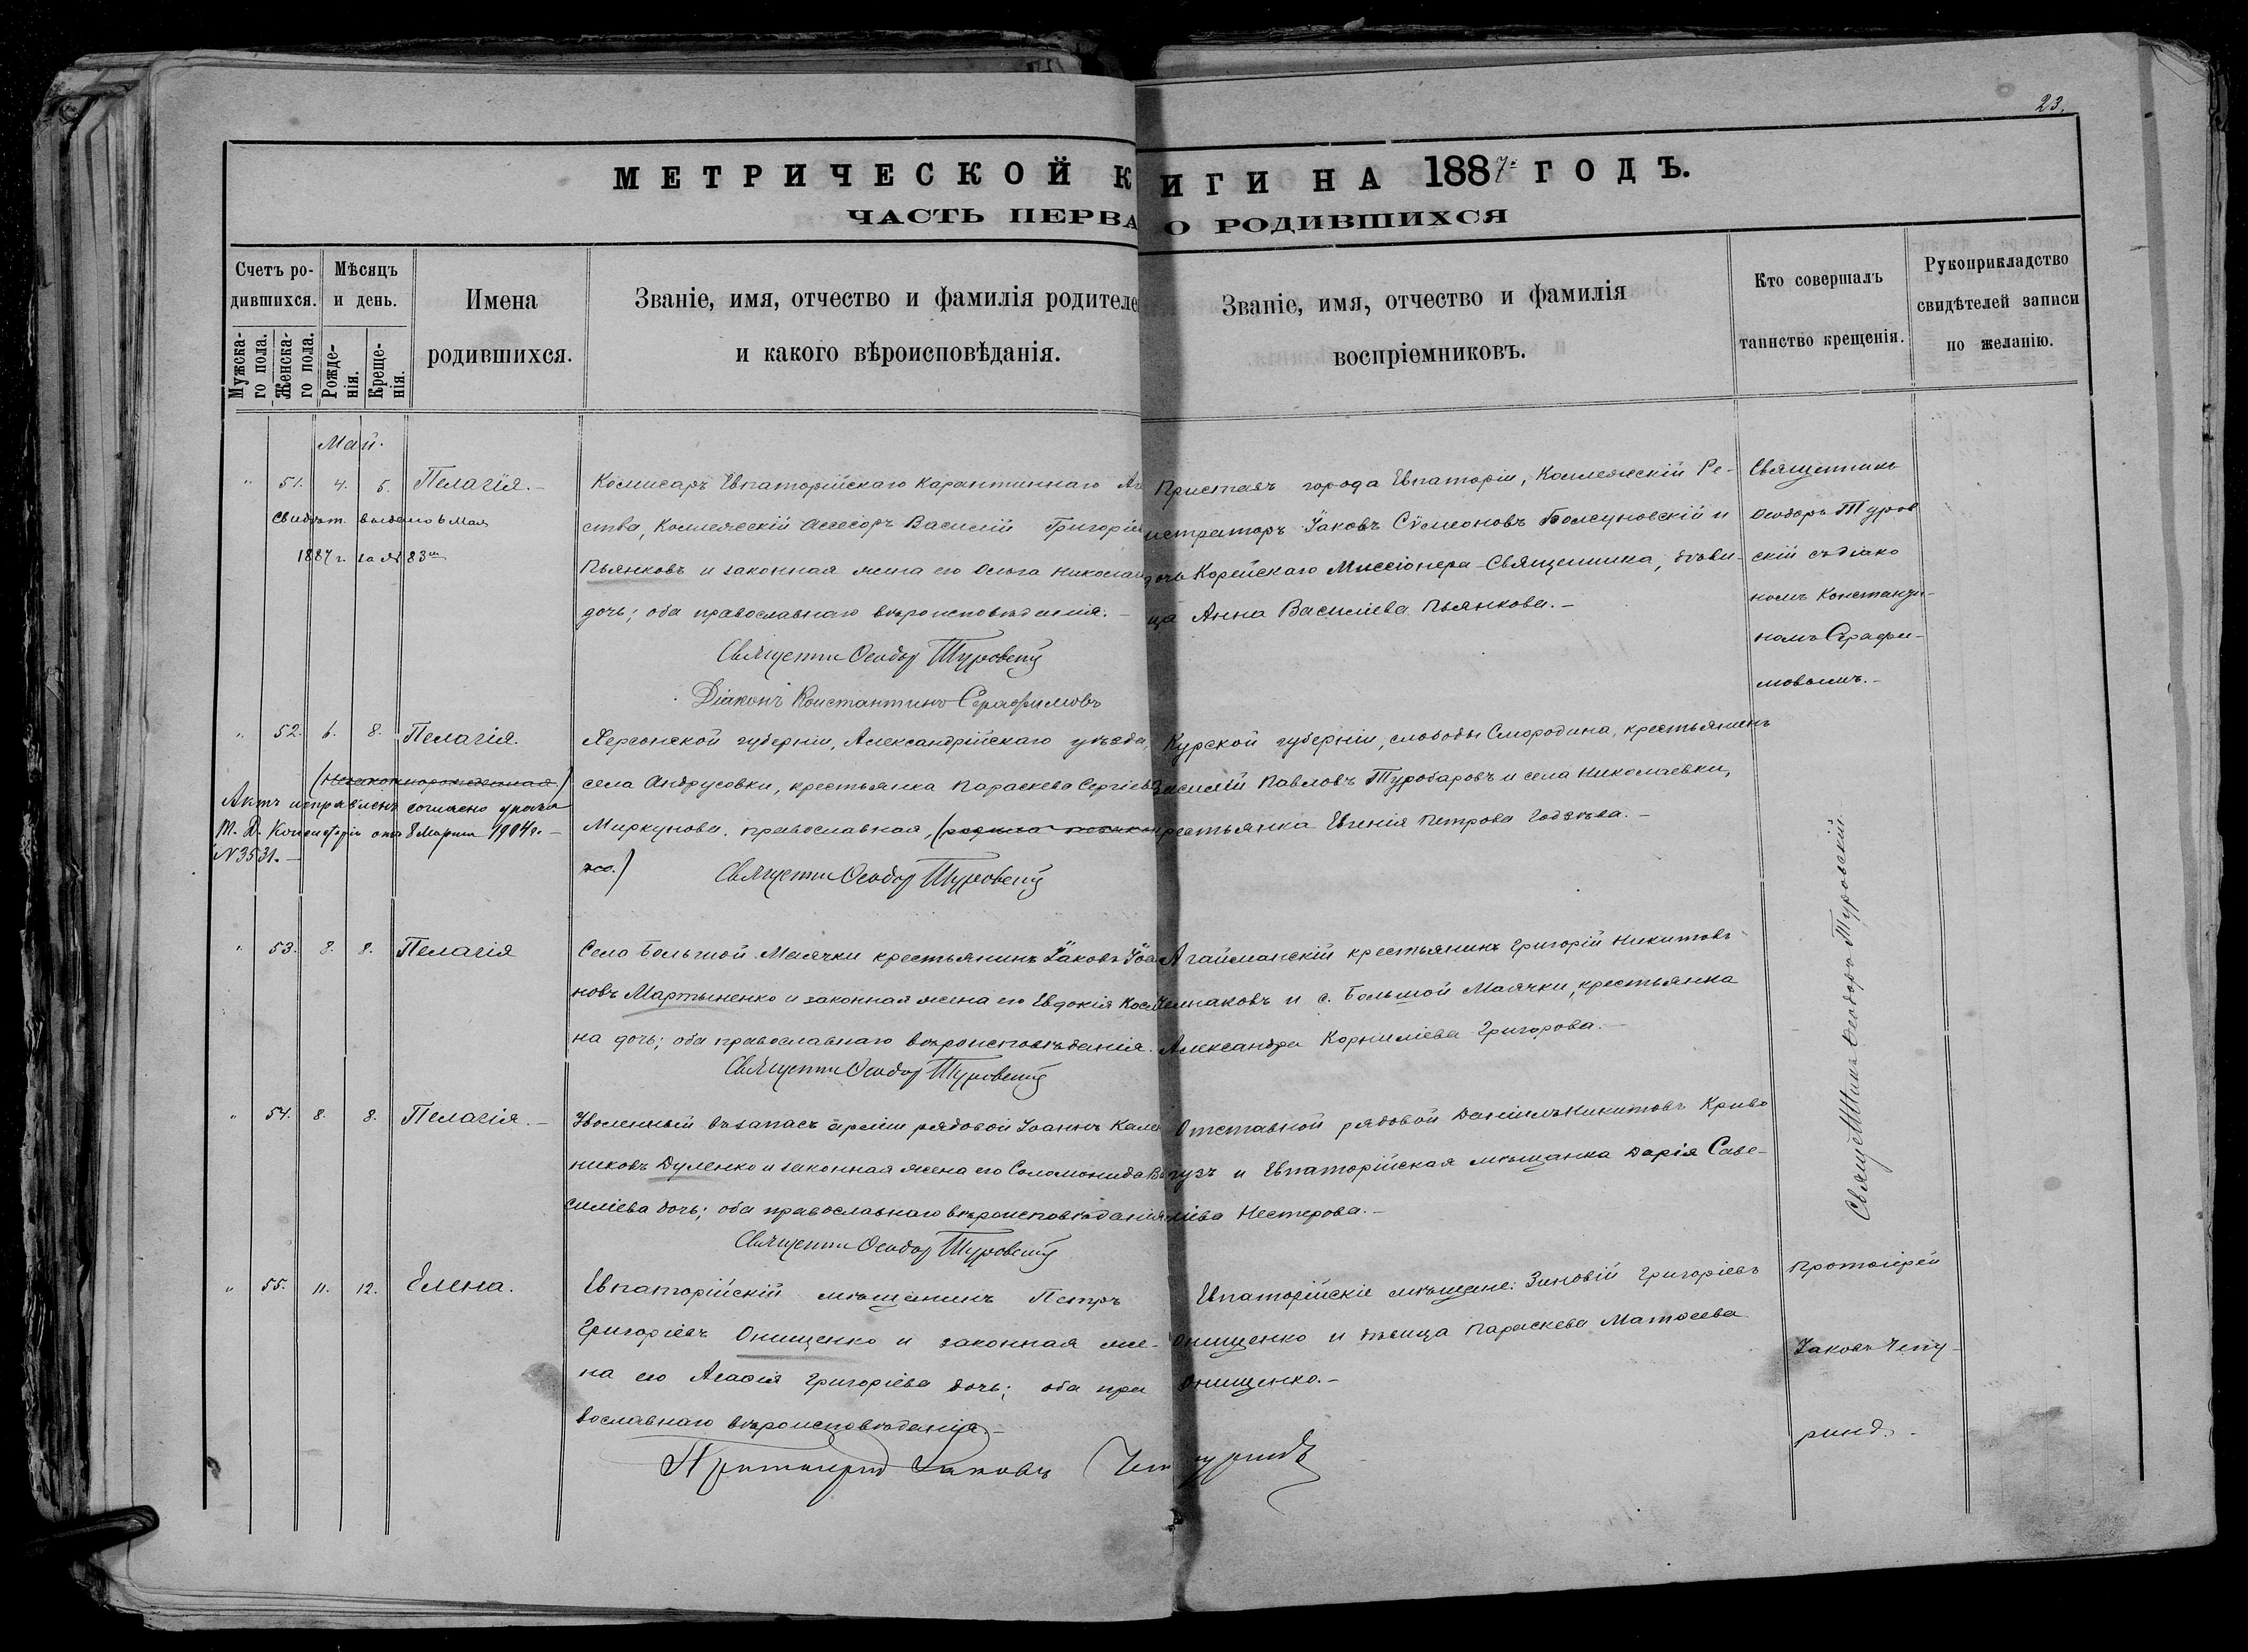 23.
МЕТРИЧЕСКОЙ К ИГИ НА 1887 ГОДЪ.
ЧАСТЬ ПЕРВА О РОДИВШИХСЯ
Счетъ ро-
дившихся.
Мужска-
го пола.
Женска-
го пола.
Мѣсяцъ
и день.
Рожде-
нія.
Креще-
нія.
Имена
родившихся.
Званіе, имя, отчество и фамилія родителе
и какого вѣроисповѣданія.
Званіе, имя, отчество и фамилія
воспріемниковъ.
Кто совершалъ
таинство крещенія.
Рукоприкладство
свидѣтелей записи
по желанію.
Май.
" 51. 4. 5. Пелагія.-
Свидѣт. выдано 6 Мая
1887 г. за № 83
Комисаръ Евпаторійскаго Карантиннаго Аг
ства, Коллежскій Ассесоръ Василій Григоріев
Пьянковъ и законная жена его Ольга Николаи
дочь; оба православнаго вѣроисповѣданія.-
Священникъ Ѳеодоръ Туровскій
Діаконъ Константинъ Серафимовъ
Приставъ города Евпаторіи, Коллежскій Ре-
истраторъ Іаковъ Сѵмеоновъ Болсуновскій и
дочь Корейскаго Миссіонера-Священника, дѣви-
ца Анна Василіева Пьянкова.-
Священникъ
Ѳеодоръ Туров
скій съ діако
номъ Константи-
номъ Серафи-
мовымъ.-
" 52. 6. 8. Пелагія.
(Незаконнорожденная)
Актъ исправленъ согласно указа
Т. Д. Консисторіи отъ 8 Марта 1904 г.-
№ 3531.-
Херсонской губерніи, Александрійскаго уѣзда,
села Андрусовки, крестьянка Параскева Сергіева
Миркунова, православная, (родила незакон
но.)
Священникъ Ѳеодоръ Туровскій
Курской губерніи, слободы Смородина, крестьянинъ
Василій Павловъ Туробаровъ и села Николаевки,
крестьянка Евгенія Петрова
" 53. 8. 8. Пелагія
Села Большой Маячки крестьянинъ Іаковъ Іоа
новъ Мартыненко и законная жена его Евдокія Косм
на дочь; оба православнаго вѣроисповѣданія.
Священникъ Ѳеодоръ Туровскій
Агайманскій крестьянинъ Григорій Никитовъ
и с. Большой Маячки, крестьянка
Александра Корниліева Григорова.-
" 54. 8. 8. Пелагія.-
Уволенный въ запасъ арміи рядовой Іоаннъ Кале
никовъ Дуленко и законная жена его Соломонида Ва
силіева дочь; оба православнаго вѣроисповѣданія
Священникъ Ѳеодоръ Туровскій
Отставной рядовой Даніилъ Никитовъ Криво
гузъ и Евпаторійская мѣщанка Дарія Саве-
ліева Нестерова.-
Священникъ Ѳеодоръ Туровскій.
" 55. 11. 12. Елена.
Евпаторійскій мѣщанинъ Петръ
Григоріевъ Онищенко и законная же-
на его Агафія Григоріева дочь; оба пра
вославнаго вѣроисповѣданія-
Протоіерей Іаковъ Чепуринъ
Евпаторійскіе мѣщане: Зиновій Григоріевъ
Онищенко и дѣвица Параскева Матѳеева
Онищенко.-
Протоіерей
Іаковъ Чепу-
ринъ.-